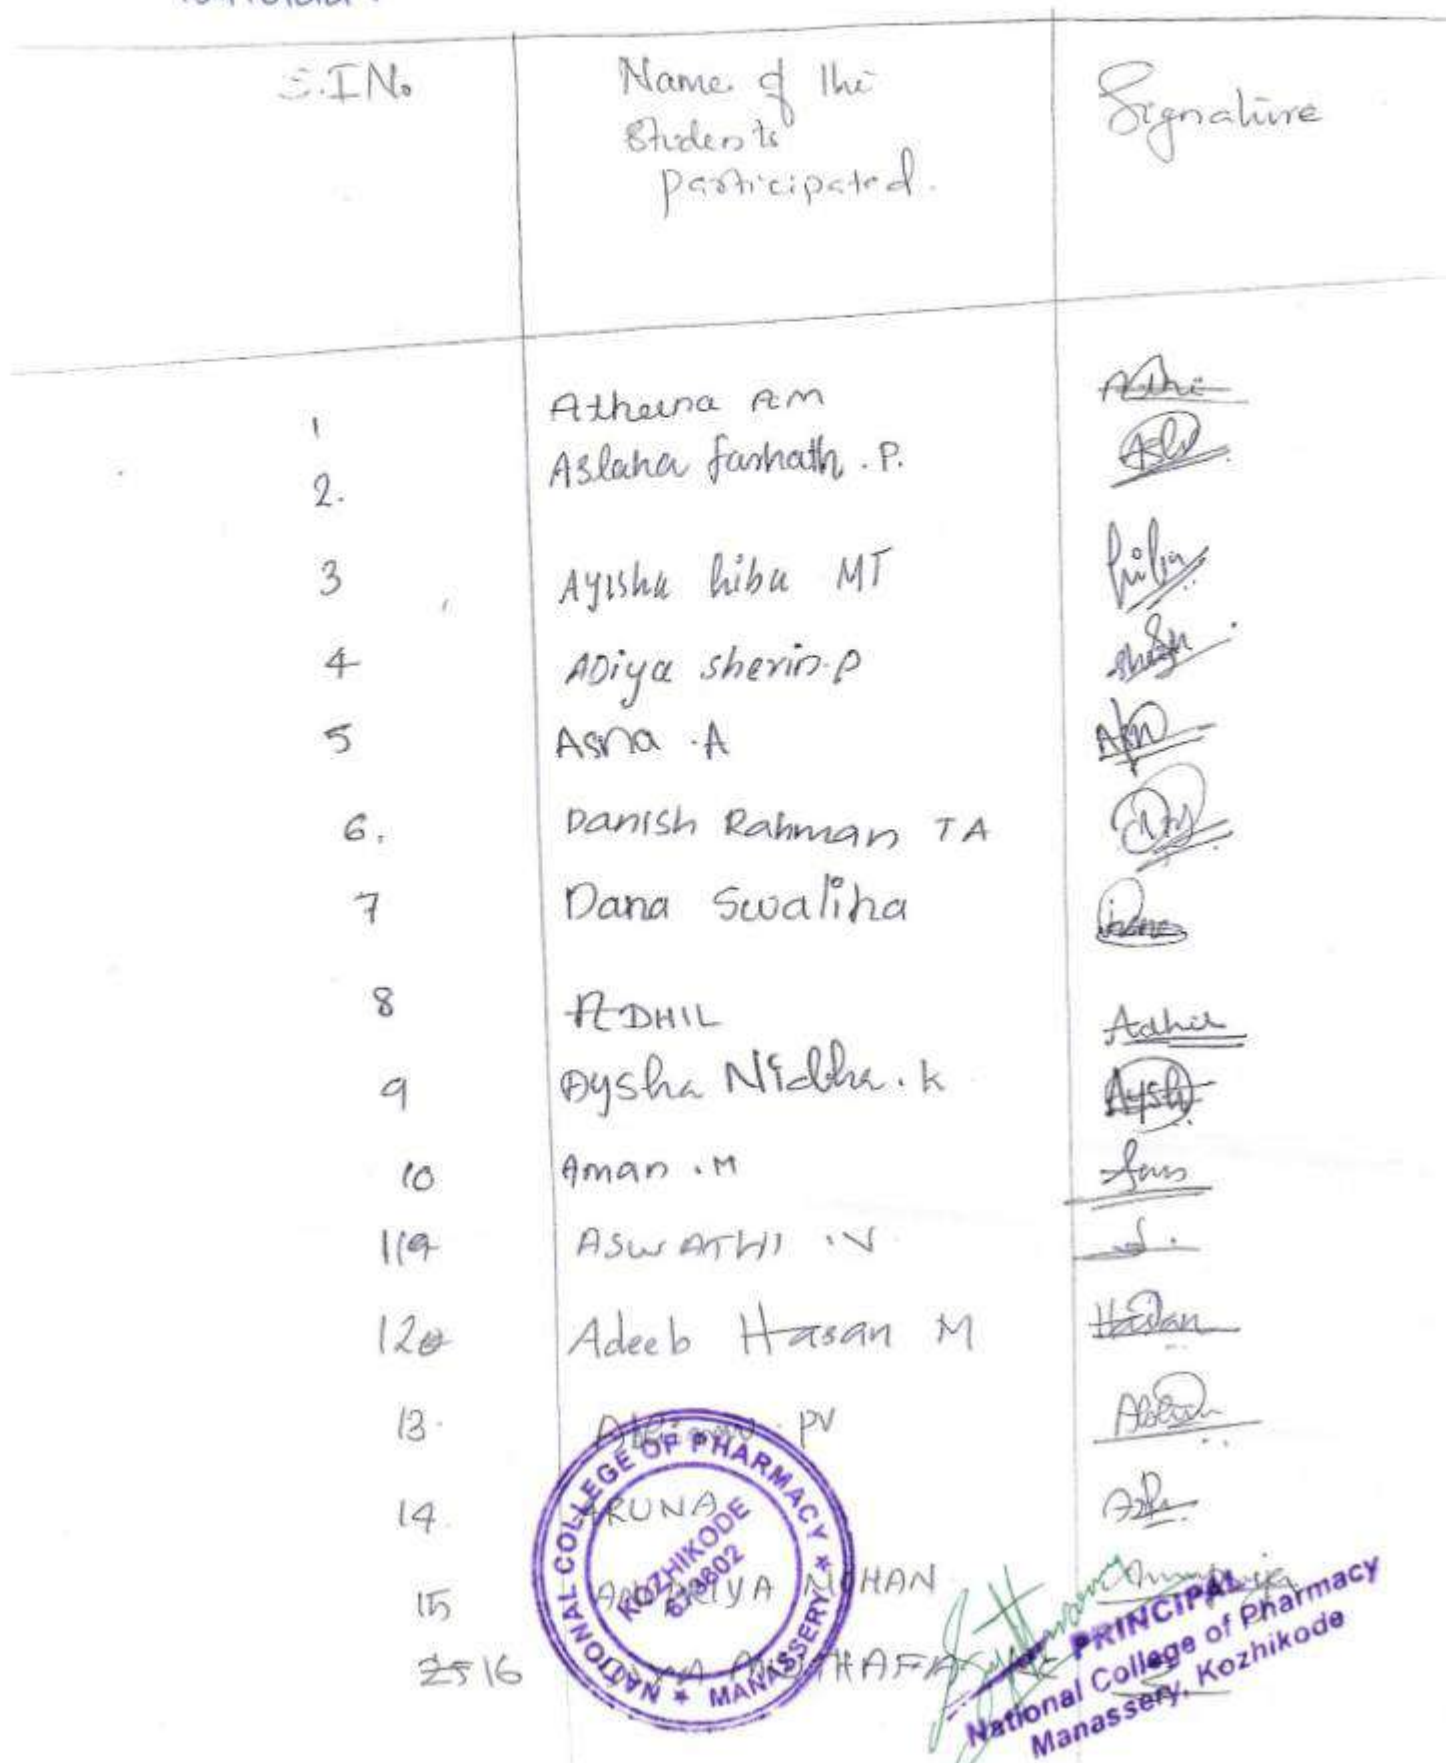 S.I No
Name of the
Students
participated.
Signature
1 Atheena AM
2. Aslaha farhath . P.
3 Ayisha hiba MT hiba
4 ADiya sherin.P
5 Asna .A
6. Danish Rahman TA
7 Dana Swaliha Dana
8 ADHIL Adhil
9 Aysha Nidha . k Aysh
10 Aman . M
11 ASWATHI . V
12 Adeeb Hasan M Hasan
13. PV
14. ARUNA
15 MOHAN
16
NATIONAL COLLEGE OF PHARMACY * MANASSERY *
KOZHIKODE
673602
PRINCIPAL
National College of Pharmacy
Manassery, Kozhikode